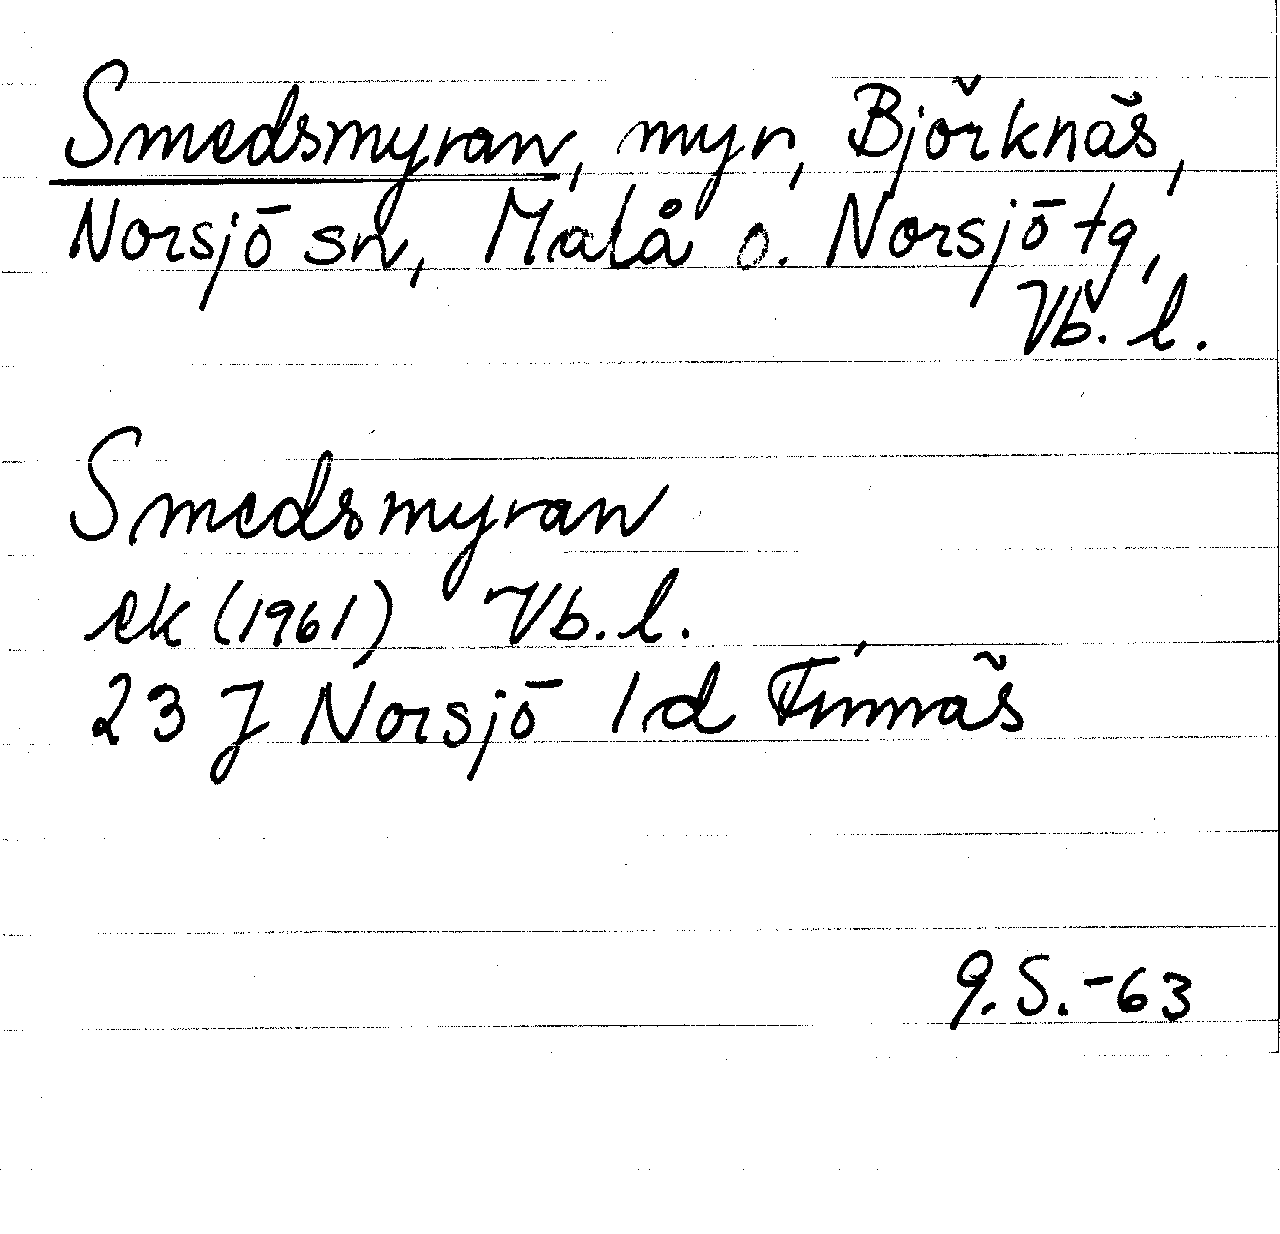 Smedsmyran, myr, Björknäs,
Norsjö sn, Malå o. Norsjö tg,
Vb. l.
Smedsmyran
ek (1961) Vb. l.
23 J Norsjö 1d Finnäs
G. S. -63